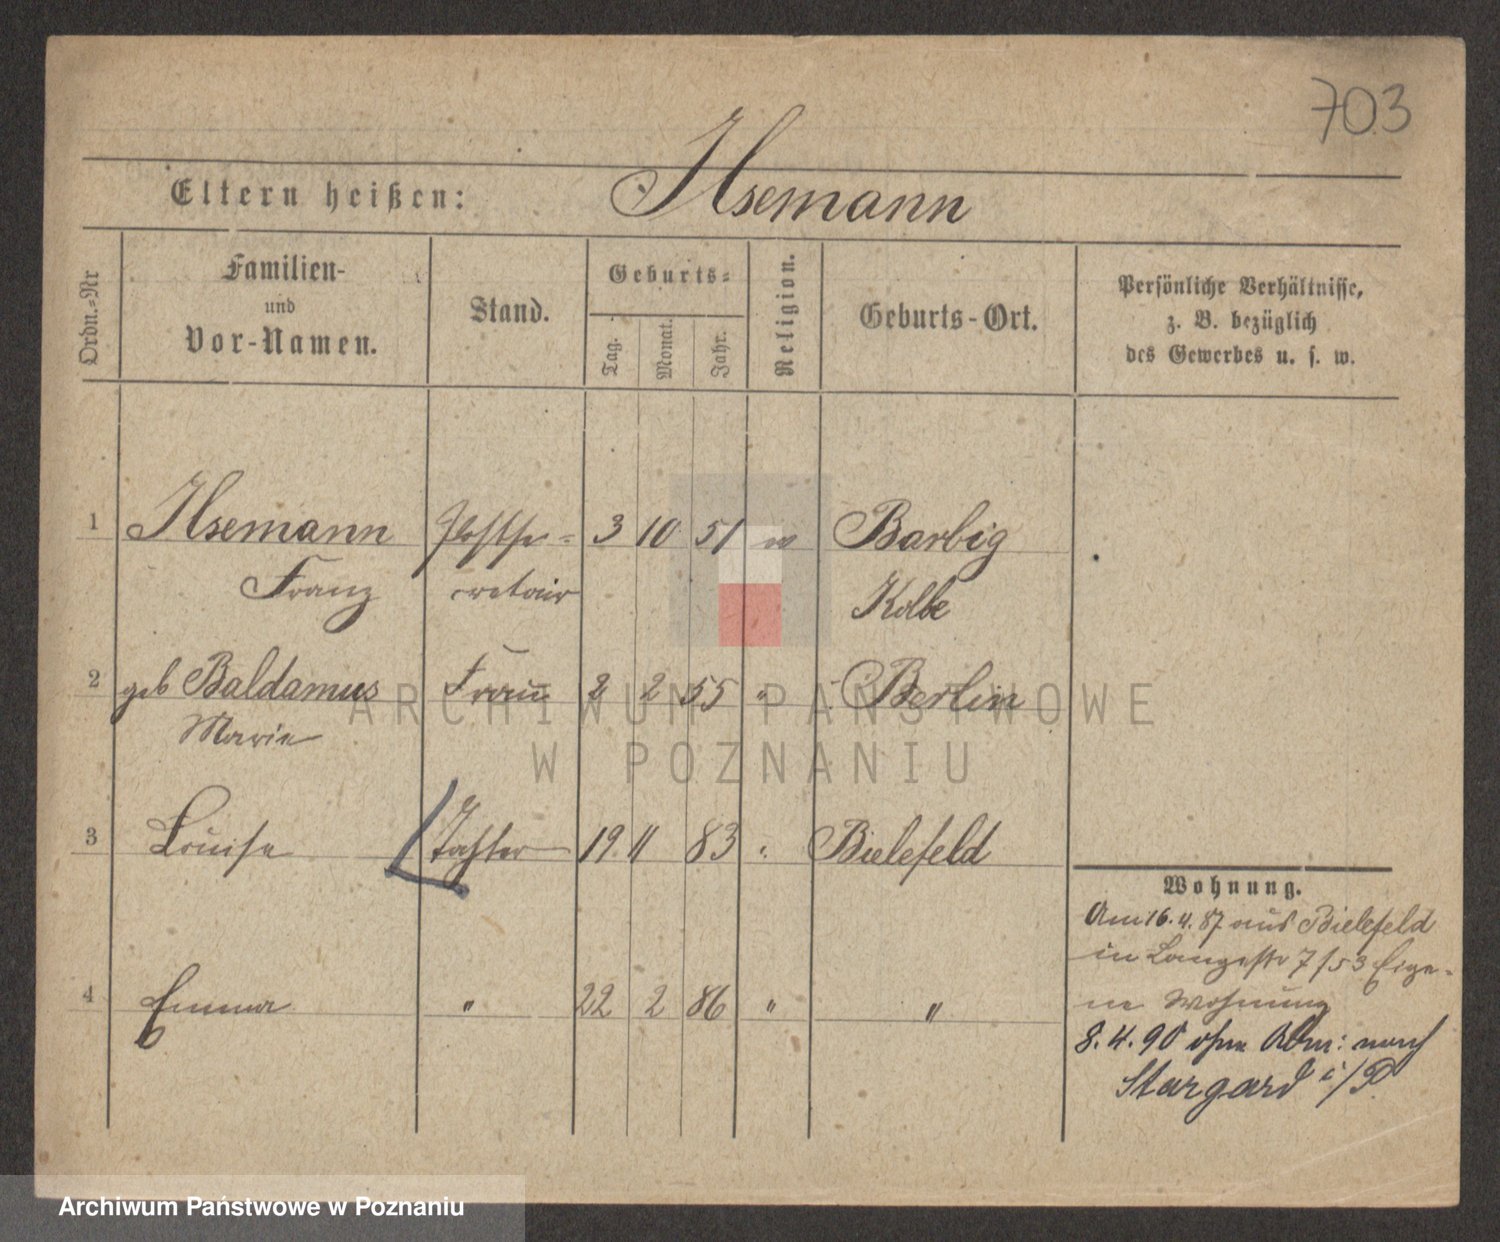 703
Eltern heißen: Ilsemann
Ordn.=Nr
Familien-
und
Vor-Namen.
Stand.
Geburts=
Tag.
Monat.
Jahr.
Religion.
Geburts-Ort.
Persönliche Verhältnisse,
z. B. bezüglich
des Gewerbes u. s. w.
1 Ilsemann Postse= 3 10 51 Barbig
Franz cretair Kolbe
2 geb Baldamus Frau 2 2 55 " Berlin
Marie
3 Louise Tochter 19 11 83 " Bielefeld
4 Emma " 22 2 86 " "
Wohnung.
Am 16.4.87 aus Bielefeld
in Langestr 7/53 Eige=
ne Wohnung
8.4.90 ohne Abm: nach
Stargard i/P.
ARCHIWUM PAŃSTWOWE
W POZNANIU
Archiwum Państwowe w Poznaniu